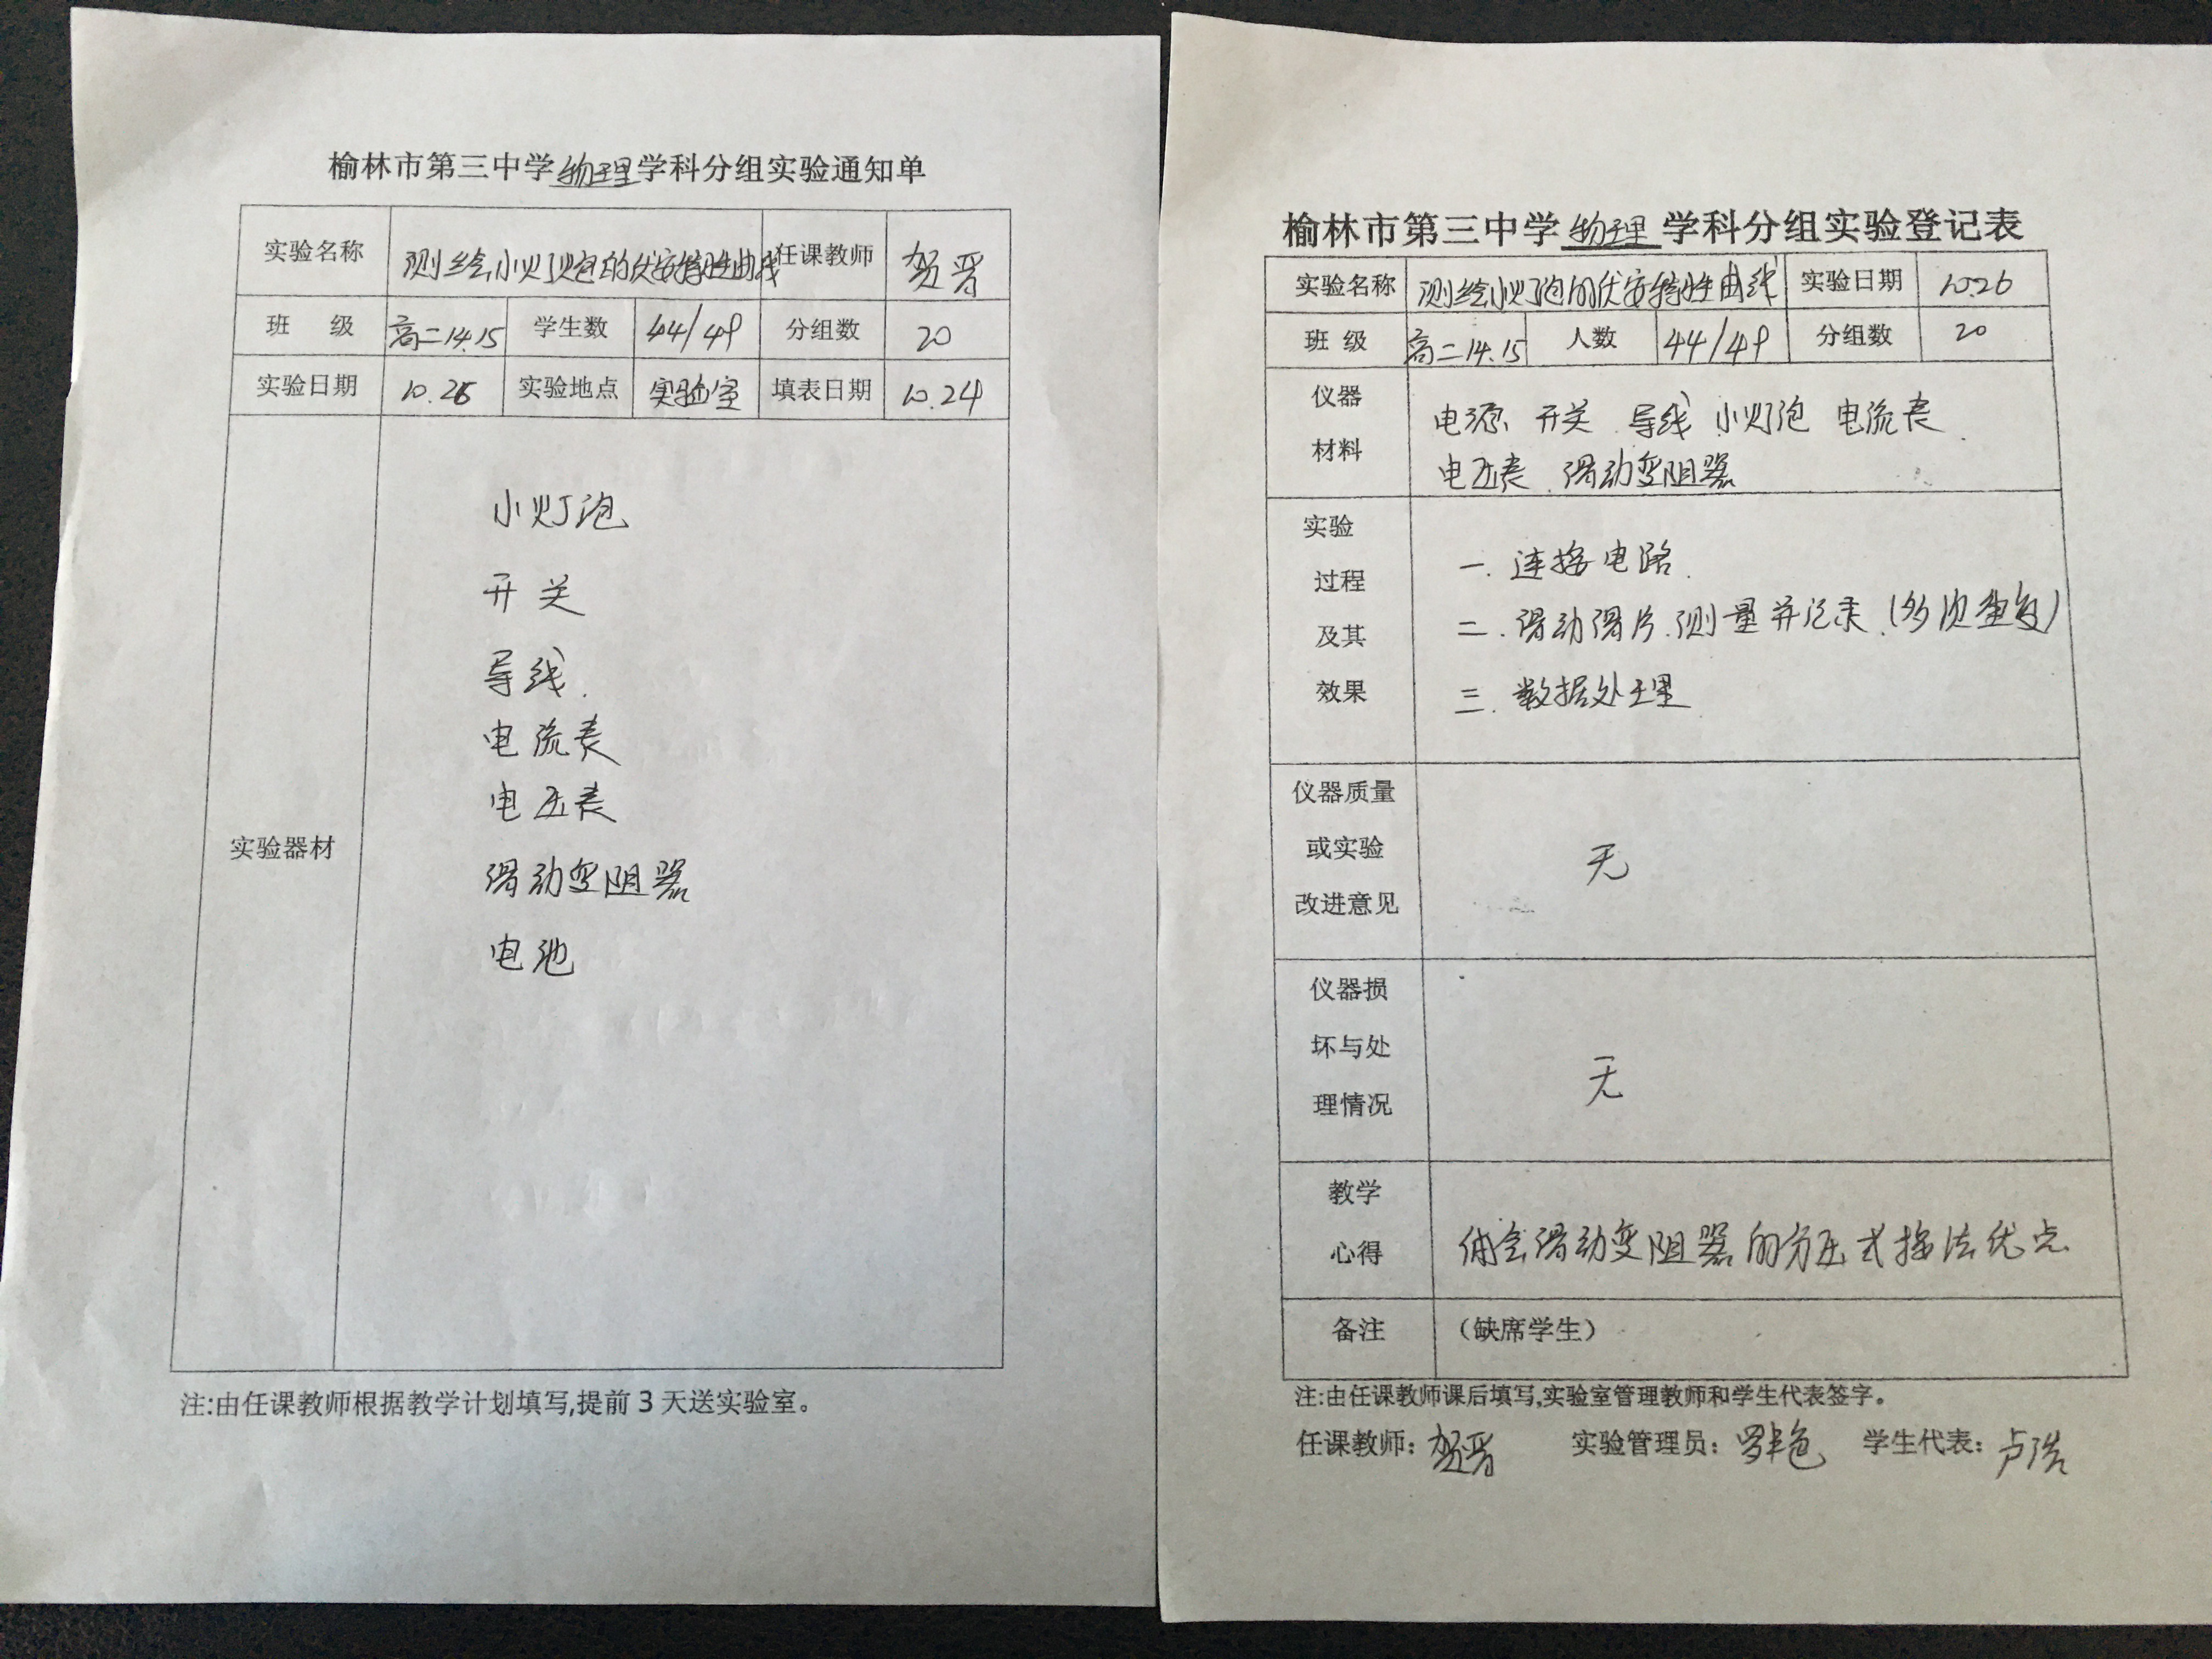 榆林市第三中学物理学科分组实验通知单
实验名称 测绘小灯泡的伏安特性曲线 任课教师 贺晋
班 级 高二14.15 学生数 44/49 分组数 20
实验日期 10.26 实验地点 实验室 填表日期 10.24
实验器材
小灯泡
开关
导线.
电流表
电压表
滑动变阻器
电池
注:由任课教师根据教学计划填写,提前3天送实验室。
榆林市第三中学物理学科分组实验登记表
实验名称 测绘小灯泡的伏安特性曲线 实验日期 10.26
班 级 高二14.15 人数 44/49 分组数 20
仪器
材料
电源 开关 导线 小灯泡 电流表
电压表 滑动变阻器
实验
过程
及其
效果
一. 连接电路.
二. 滑动滑片.测量并记录.(多次重复)
三. 数据处理
仪器质量
或实验
改进意见
无
仪器损
坏与处
理情况
无
教学
心得
体会滑动变阻器的分压式接法优点
备注 (缺席学生)
注:由任课教师课后填写,实验室管理教师和学生代表签字。
任课教师: 贺晋 实验管理员: 学生代表: 卢浩